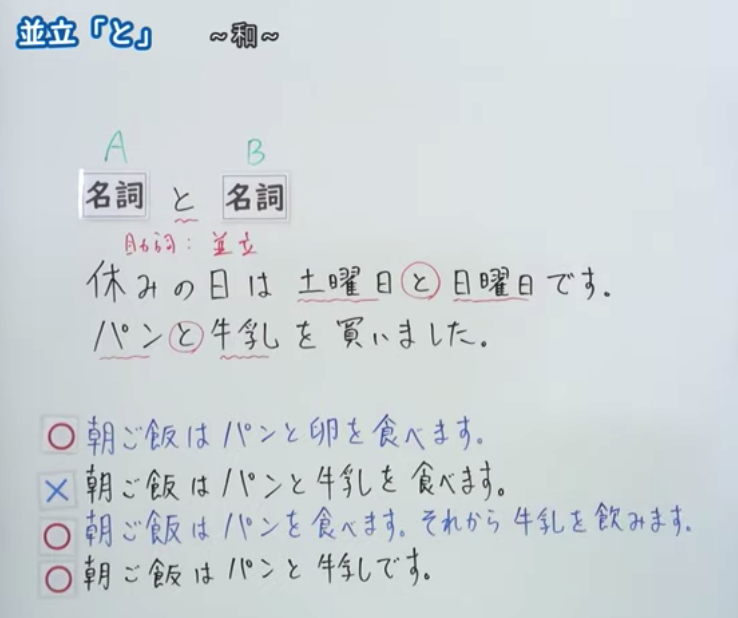 並立「と」 ~和~
A B
名詞 と 名詞
助詞: 並立
休みの日は 土曜日と日曜日です。
パンと牛乳を買いました。
○ 朝ご飯はパンと卵を食べます。
× 朝ご飯はパンと牛乳を食べます。
○ 朝ご飯はパンを食べます。それから牛乳を飲みます。
○ 朝ご飯はパンと牛乳です。